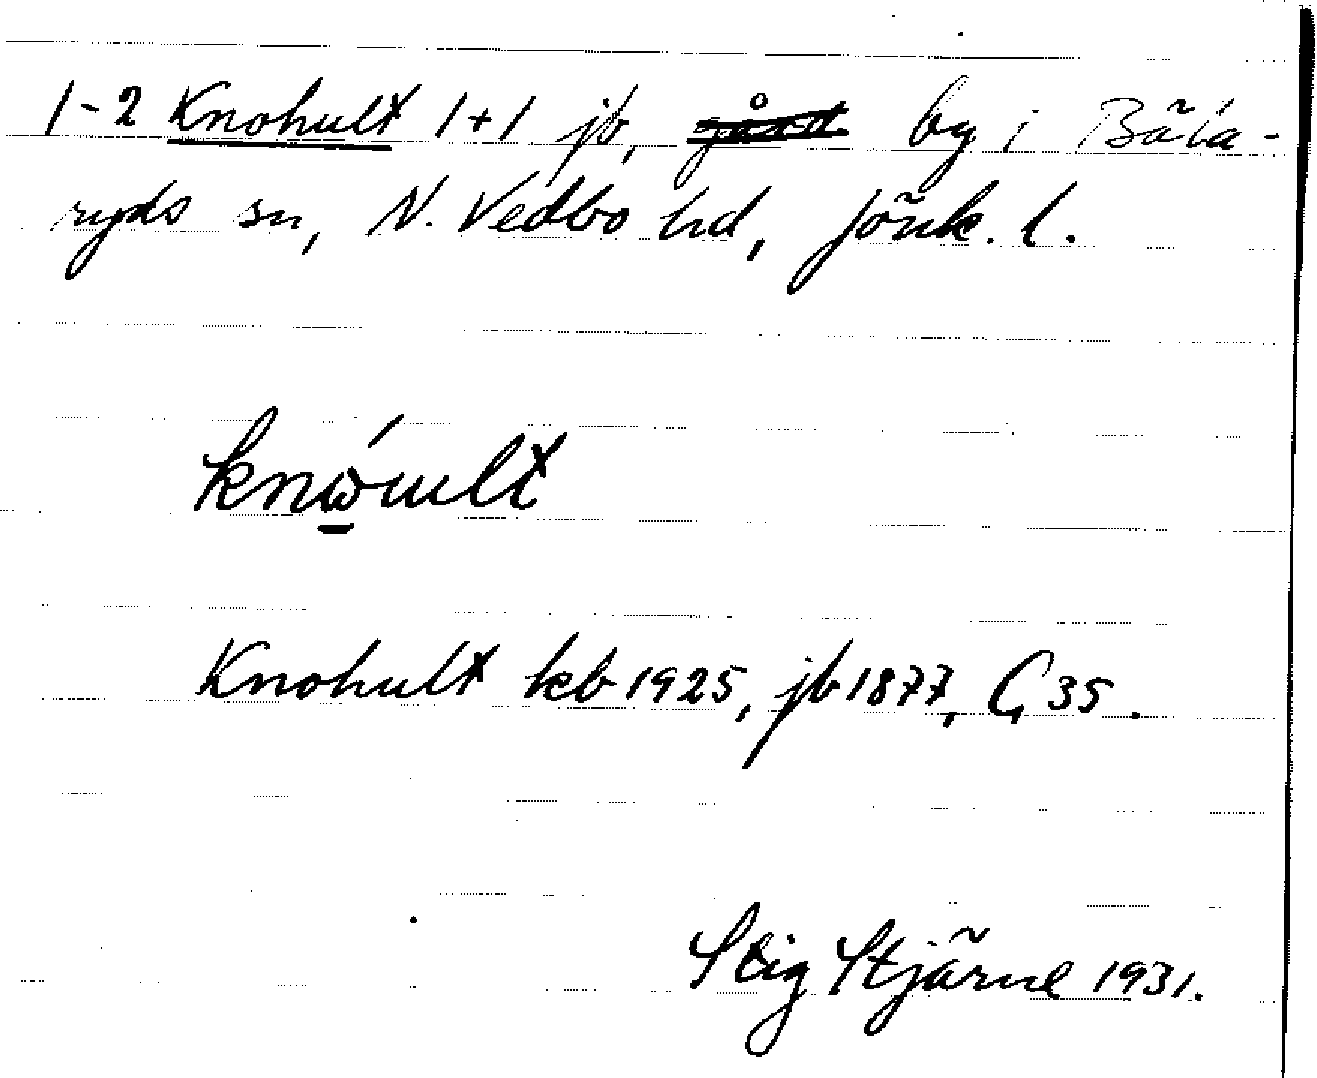 1-2 Knohult 1+1 jb, by i Bäla-
ryds sn, N. Vedbo hd, Jönk. l.
knώult
Knohult kb 1925, jb 1877, G 35.
Stig Stjärne 1931.